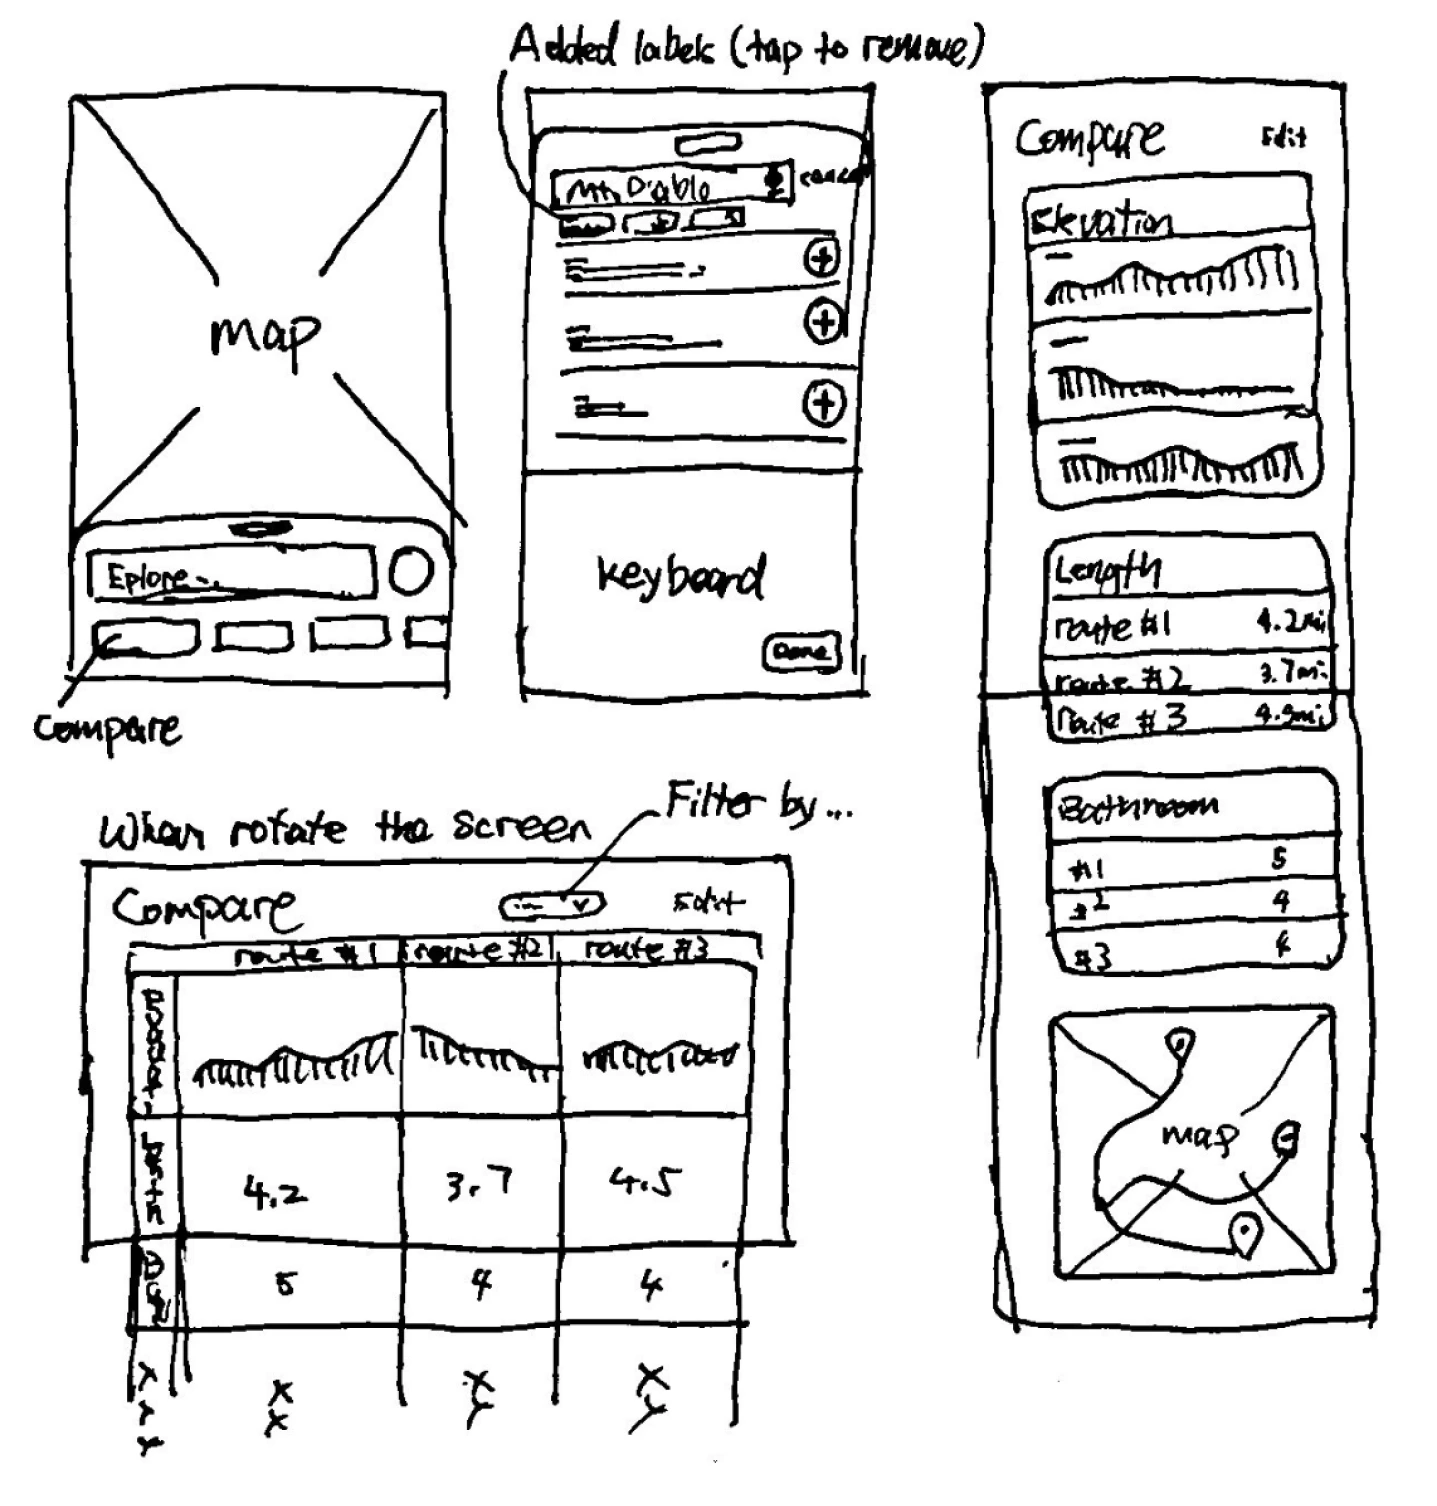 Added labels (tap to remove)
map
Eplore...
Compare
Mt. Diablo
cancel
keyboard
Done
Compare
Edit
Elevation
Length
route #1 4.2mi
route #2 3.7mi
route #3 4.5mi
Bathroom
#1 5
#2 4
#3 4
map
When rotate the screen
Filter by...
Compare
Edit
route #1 route #2 route #3
Length
4.2 3.7 4.5
5 4 4